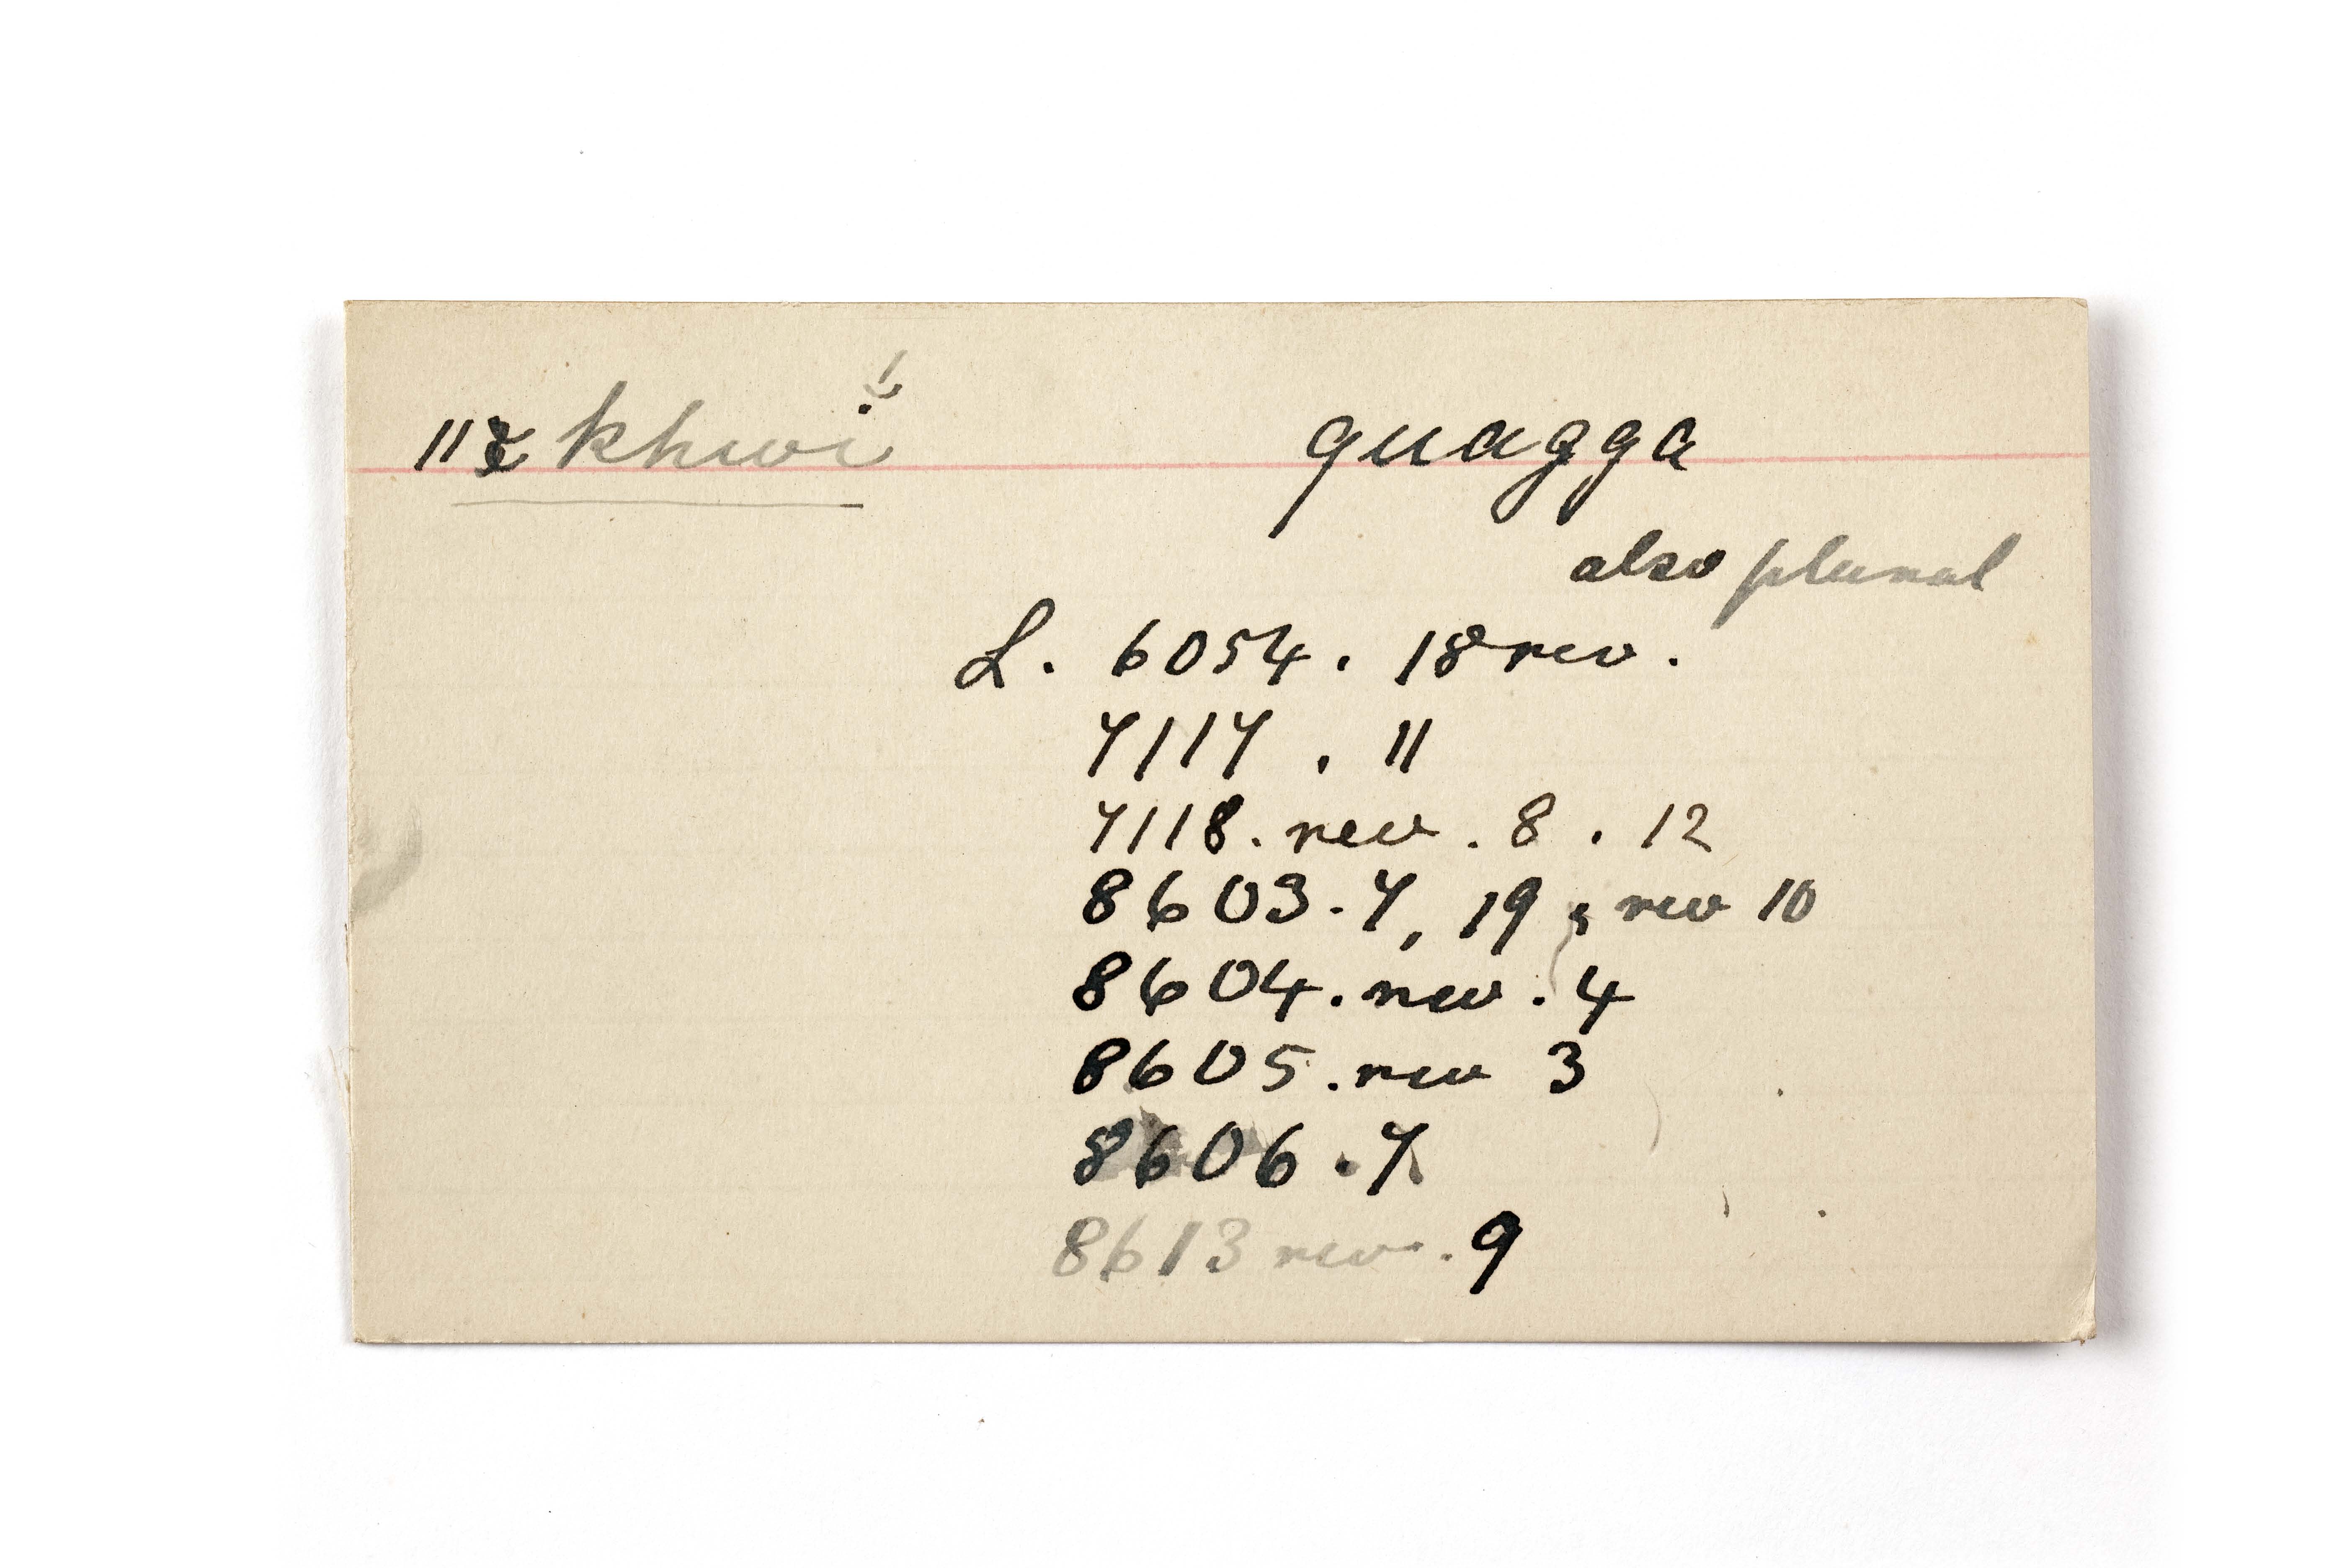 ǁkhwi quagga
also plural
L. 6054. 18 rev.
7117. 11
7118. rev. 8. 12
8603. 7, 19; rev 10
8604. rev. 4
8605. rev 3
8606. 7
8613 rev. 9